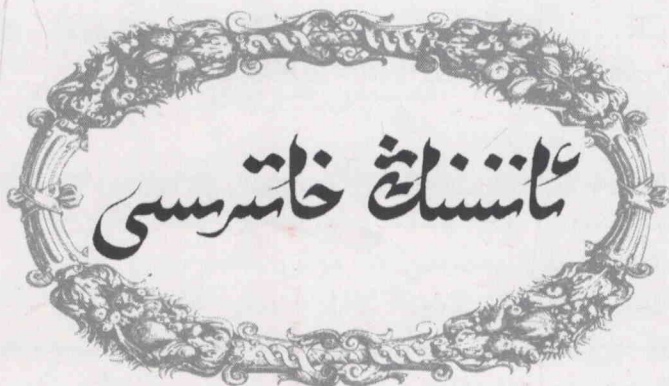 ئاننىنىڭ خاتىرىسى